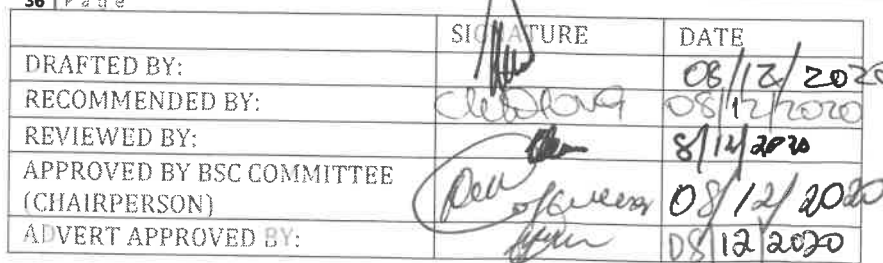 36 | P a g e
SIGNATURE DATE
DRAFTED BY: 08/12/2020
RECOMMENDED BY: 08/12/2020
REVIEWED BY: 8/12/2020
APPROVED BY BSC COMMITTEE
(CHAIRPERSON) 08/12/2020
ADVERT APPROVED BY: 08/12/2020